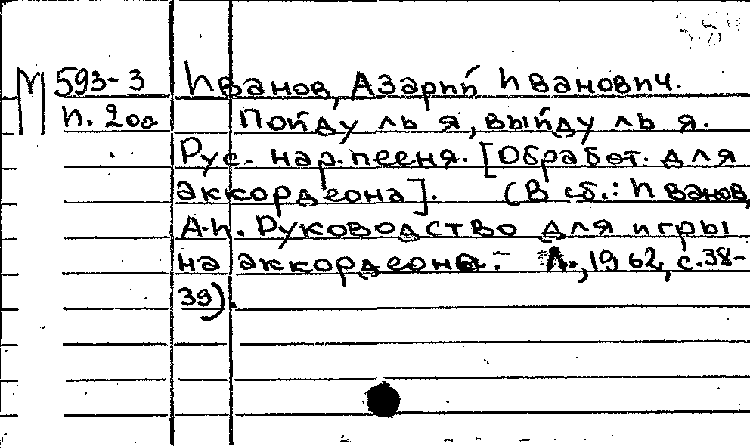 М 593-3 Иванов, Азарий Иванович.
И. 200 Пойду ль я, выйду ль я.
Рус. нар. песня. [Обработ. для
аккордеона]. (В сб.: Иванов,
А.И. Руководство для игры
на аккордеоне. Л., 1962, с. 38-
39).